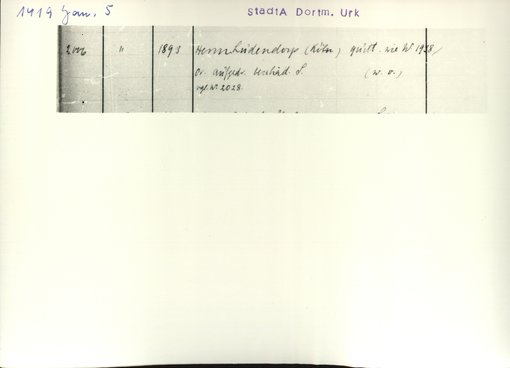 1419 Jan. 5
StadtA Dortm. Urk
2006 " 1893 Herm. Lüdendorp (Köln) quitt. wie Nr 1938/
Or. aufgedr. S. (w. o.)
vgl. Nr. 2028.